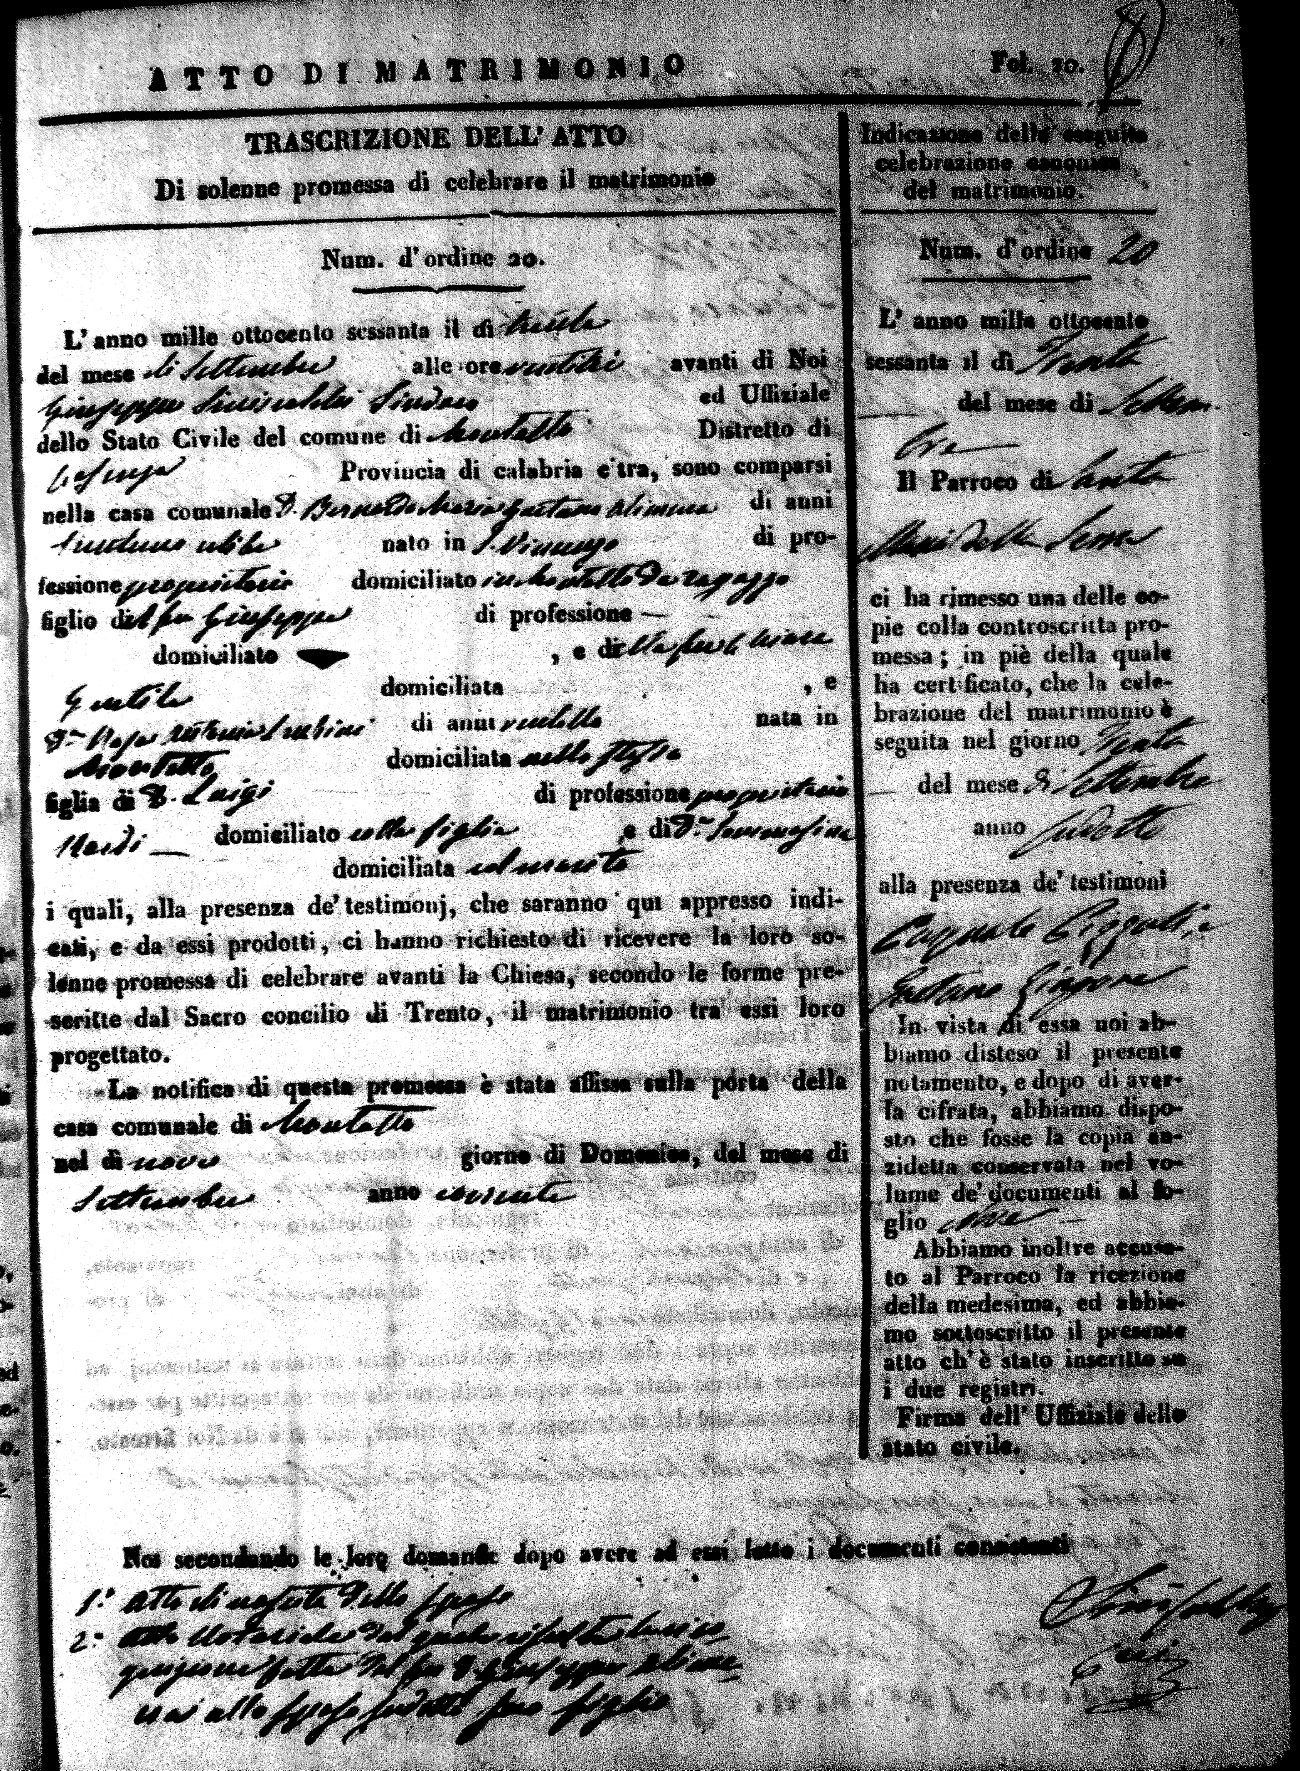 ATTO DI MATRIMONIO
Fol. 20.
TRASCRIZIONE DELL' ATTO
Di solenne promessa di celebrare il matrimonio
Num. d'ordine 20.
L' anno mille ottocento sessanta il dì trenta
del mese di Settembre alle ore ventitrè avanti di Noi
Giuseppe Sinisaldi Sindaco ed Uffiziale
dello Stato Civile del comune di Montalto Distretto di
Cosenza Provincia di calabria citra, sono comparsi
nella casa comunale D. Bernardo Maria Gaetano Alimena di anni
nato in S. Vincenzo di pro-
fessione proprietario domiciliato in Montalto da ragazzo
figlio del fu Giuseppe di professione —
domiciliato , e della fu
Gentile domiciliata , e
D.na Rosa di anni ventotto nata in
Montalto domiciliata nello stesso
figlia di D. Luigi di professione proprietario
Nardi — domiciliato colla figlia , e di D.na Tommasina
domiciliata col marito
i quali, alla presenza de' testimonj, che saranno qui appresso indi-
cati, e da essi prodotti, ci hanno richiesto di ricevere la loro so-
lenne promessa di celebrare avanti la Chiesa, secondo le forme pre-
scritte dal Sacro concilio di Trento, il matrimonio tra essi loro
progettato.
La notifica di questa promessa è stata affissa sulla porta della
casa comunale di Montalto
nel dì nove giorno di Domenica, del mese di
Settembre anno corrente
Indicazione della seguita
celebrazione canonica
del matrimonio.
Num. d'ordine 20
L' anno mille ottocento
sessanta il dì Trenta
del mese di Settem-
bre —
Il Parroco di Santa
Maria della Serra
ci ha rimesso una delle co-
pie colla controscritta pro-
messa; in piè della quale
ha certificato, che la cele-
brazione del matrimonio è
seguita nel giorno Trenta
del mese di Settembre
anno sudetto
alla presenza de' testimoni
Pasquale
Gaetano
In vista di essa noi ab-
biamo disteso il presente
notamento, e dopo di aver-
la cifrata, abbiamo dispo-
sto che fosse la copia an-
zidetta conservata nel vo-
lume de' documenti al fo-
glio
Abbiamo inoltre accusa-
to al Parroco la ricezione
della medesima, ed abbia-
mo sottoscritto il presente
atto ch' è stato inscritto su
i due registri.
Firma dell' Uffiziale dello
stato civile.
Noi secondando le loro domande dopo avere ad essi letto i documenti consistenti
1.° Atto di nascita dello sposo
2.° Atto Notarile dal quale risulta
fatta dal fu D. Giuseppe Alime-
na allo sposo sudetto suo figlio